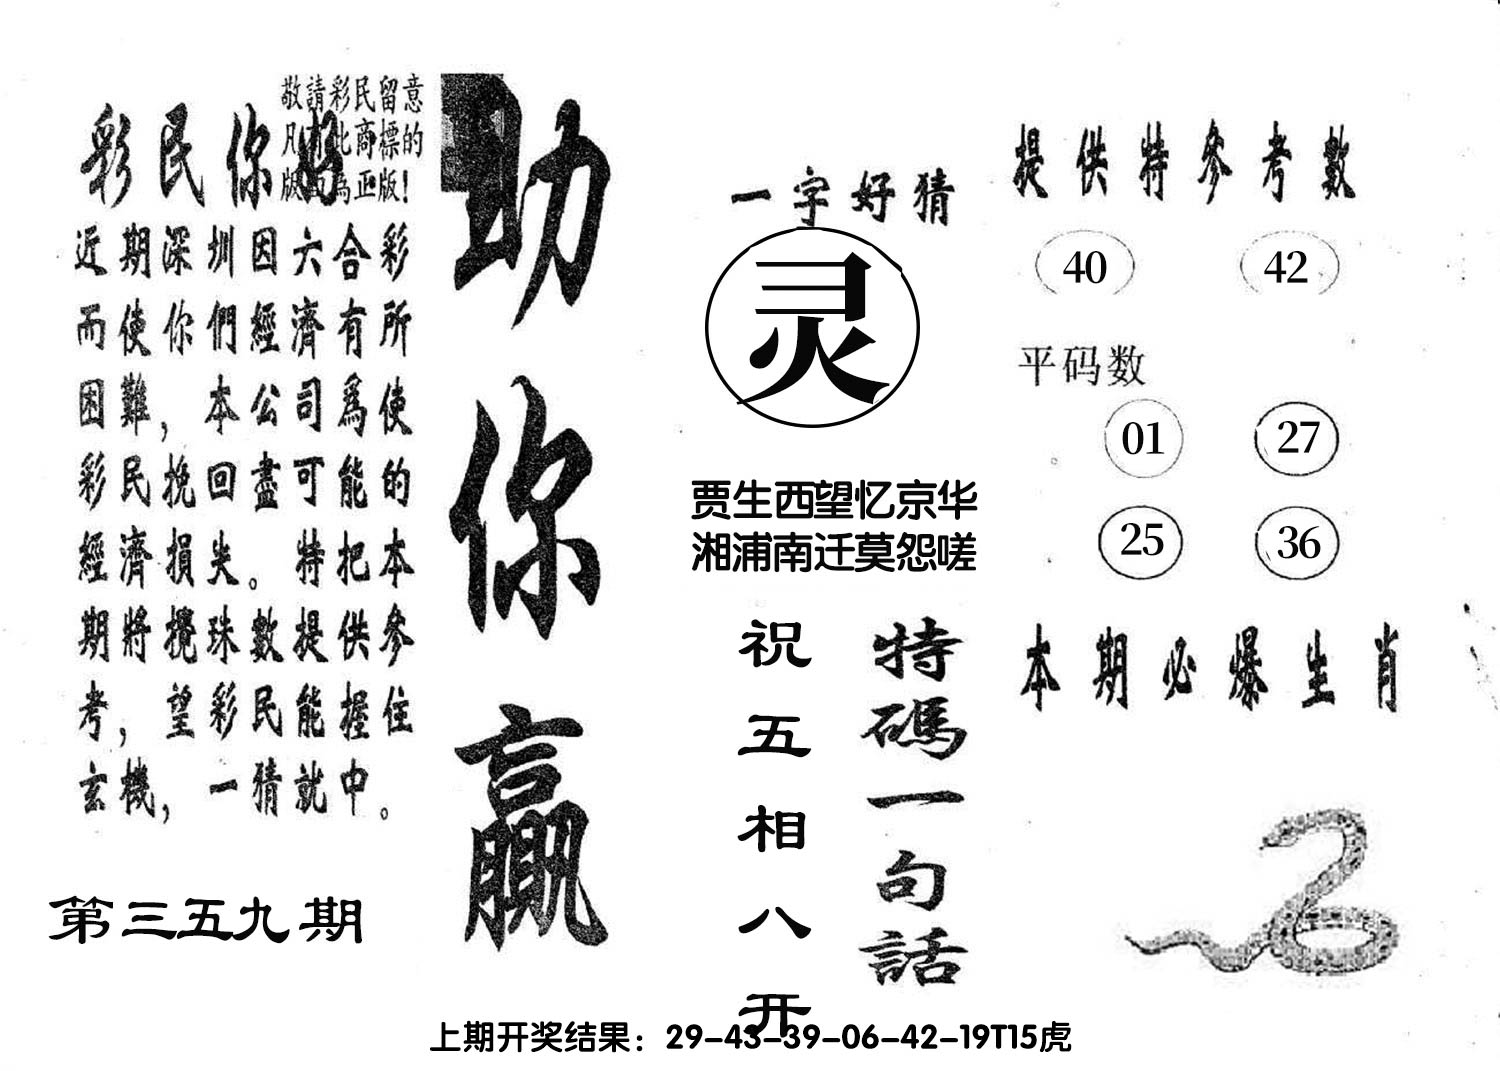 敬請彩民留意
凡有此商標的
版面為正版!
彩民你好
近期深圳因六合彩
而使你們經濟有所
困難，本公司爲使
彩民挽回盡可能的
經濟損失。特把本
期將攪珠數提供參
考，望彩民能握住
玄機，一猜就中。
第三五九期
助你贏
一字好猜
灵
贾生西望忆京华
湘浦南迁莫怨嗟
特碼一句話
祝五相八开
提供特參考數
40 42
平码数
01 27
25 36
本期必爆生肖
上期开奖结果：29-43-39-06-42-19T15虎